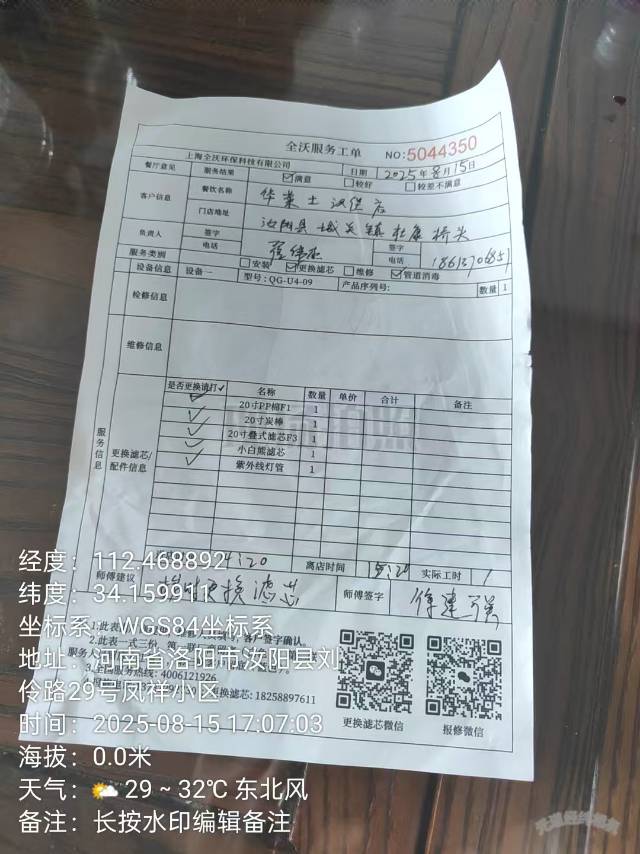 全沃服务工单 NO:5044350
上海全沃环保科技有限公司 日期 2025年8月15日
餐厅意见 服务结果 ☑满意 □较好 □较差不满意
客户信息 餐饮名称 华莱士汉堡店
门店地址 汝阳县城关镇杜康桥头
负责人 签字 签字
电话 电话
服务类别 □安装 ☑更换滤芯 □维修 ☑管道消毒
设备信息 设备一 型号:QG-U4-09 产品序列号: 数量 1
检修信息
维修信息
服务信息
更换滤芯/配件信息
是否更换请打✓ 名称 数量 单价 合计 备注
✓ 20寸PP棉F1 1
✓ 20寸炭棒 1
✓ 20寸叠式滤芯F3 1
✓ 小白熊滤芯 1
✓ 紫外线灯管 1
14:20 离店时间 15:20 实际工时 1
师傅建议 更换滤芯 师傅签字 徐建强
1.此表 客户签字确认.
2.此表一式三份,第一联
服务人
3.全国服务热线: 4006121926
更换滤芯: 18258897611
更换滤芯微信 报修微信
经度：112.468892
纬度：34.159911
坐标系：WGS84坐标系
地址：河南省洛阳市汝阳县刘
伶路29号凤祥小区
时间：2025-08-15 17:07:03
海拔：0.0米
天气：29 ~ 32℃ 东北风
备注：长按水印编辑备注